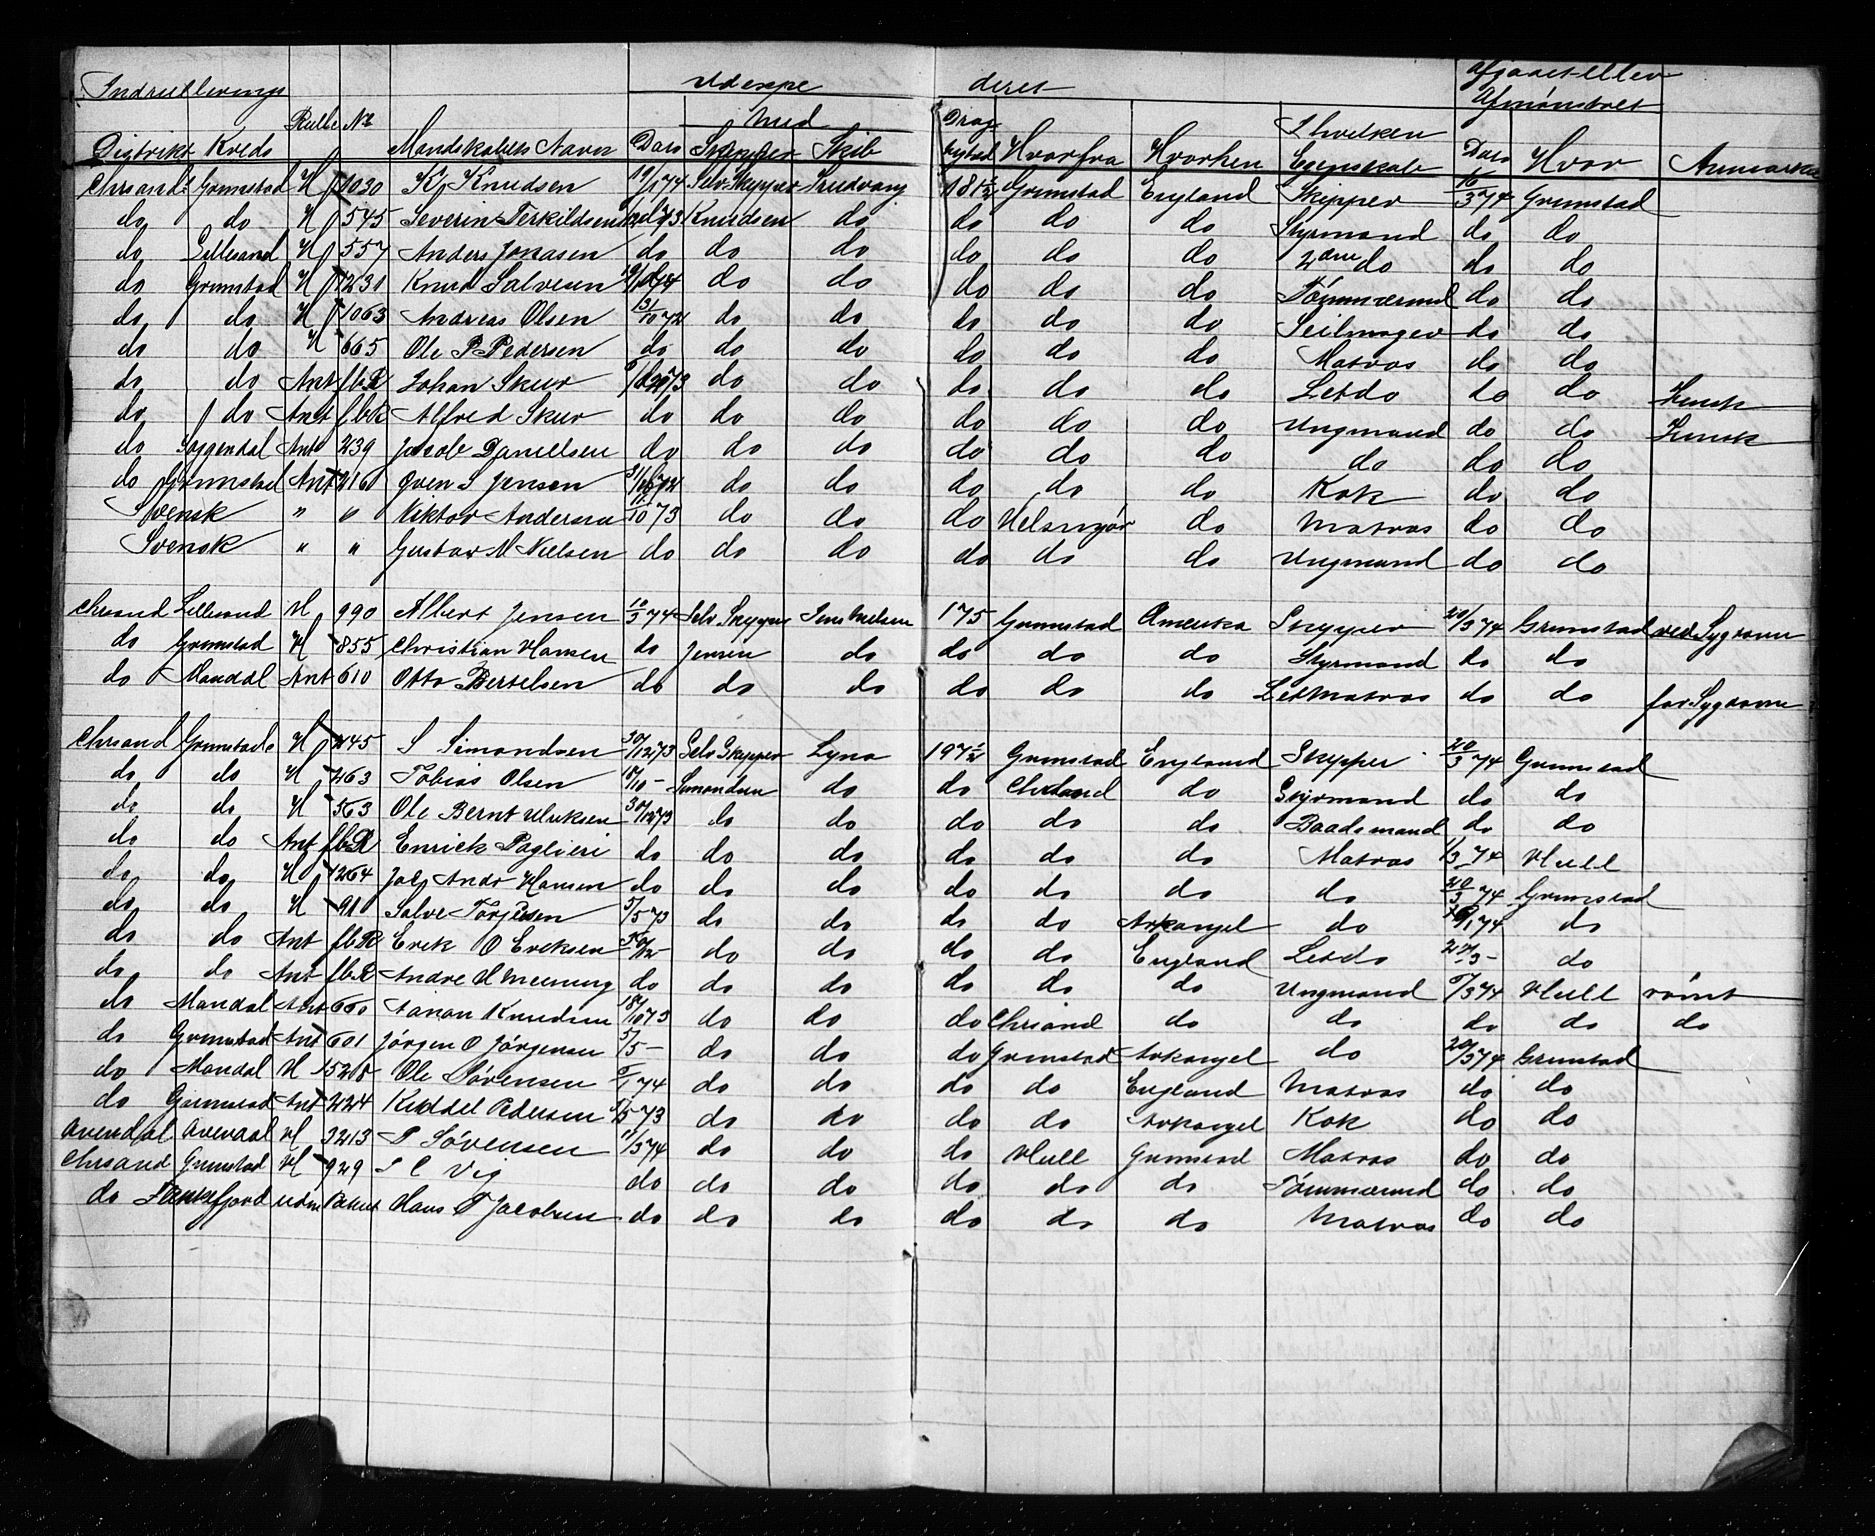 Indrullerings Udexpe deret Afgaaet eller
Rulle No Med Afmønstret
Distrikt Kreds Mandskabets Navn Dato Skipper Skib Dræg tighed Hvorfra Hvorhen I hvilken Egenskab Dato Hvor Anmærkn
Chrsand Grimstad H 1030 K Knudsen 19/1 74 Selv Skipper 181½ Grimstad England Skipper 16/3 74 Grimstad
do do H 545 Severin Terkildsen Knudsen do do do do Styrmand do do
do Lillesand H 557 Anders Jonasen do do do do do do 2den do do do
do Grimstad H 1231 Knud Salvesen 19/1 74 do do do do do Tømmermnd do do
do do H 1063 Andreas Olsen 13/10 72 do do do do do Seilmager do do
do do H 665 Ole P Pedersen do do do do do do Matros do do
do do Ant fbR Johan Skur do do do do do Letdo do do Finsk
do do Ant fbR Alfred Skur do do do do do do Ungmand do do Finsk
do Soggendal Ant 239 Jacob Danielsen do do do do do do do do do
do Grimstad Ant 216 Sven S Jensen do do do do do Kok do do
Svensk " " Viktor Anderson 11/10 73 do do do Helsingør do Matros do do
Svensk " " Gustav M Nielsen do do do do do do Ungmand do do
Chrsand Lillesand H 990 Albert Jensen 10/3 74 Selv Skipper Jens Nielsen 175 Grimstad Amerika Skipper 20/3 74 Grimstad ved Sygdom
do Grimstad H 855 Christian Hansen do Jensen do do do do Styrmand do do
do Mandal Ant 610 Otto Bertelsen do do do do do do LetMatros do do for Sygdom
Chrsand Grimstad H 245 S Simondsen 30/12 73 Selv Skipper Lyna 197½ Grimstad England Skipper 20/3 74 Grimstad
do do H 263 Tobias Olsen 18/10 - Simondsen do do Chrsand do Styrmand do do
do do H 563 Ole Bernt Ulriksen 30/12 73 do do do do do Baadsmand do do
do do Ant fbR Enrick Paglieri do do do do do do Matros 1/3 74 Hull
do do H 1264 Jac Andr Hansen do do do do do do do 20/3 74 Grimstad
do do H 91 Salve Torjusen 5/5 73 do do do do Arkangel do do
do do Ant fbR Erik O Eriksen do do do do England Letdo do
do do Ant fbR Andre H do do do do do do Ungmand 5/3 74 Hull rømt
do Mandal Ant 660 Aanon Knudsen 18/10 73 do do do Chrsand do do do do do
do Grimstad Ant 601 Jørgen O Jørgensen 5/5 - do do do Grimstad Arkangel do 20/3 74 Grimstad
do Mandal H 1528 Ole Sørensen do do do do England Matros do do
do Grimstad Ant 224 Kiddel Pedersen do do do do Arkangel Kok do do
Arendal Arendal H 3213 P Sørensen 11/3 74 do do do Hull Grimstad Matros do do
Chrsand Grimstad H 929 S C Vig do do do do do do Tømmermnd do do
do Flekkefjord uden Patent Hans T Jacobsen do do do do do do Matros do do